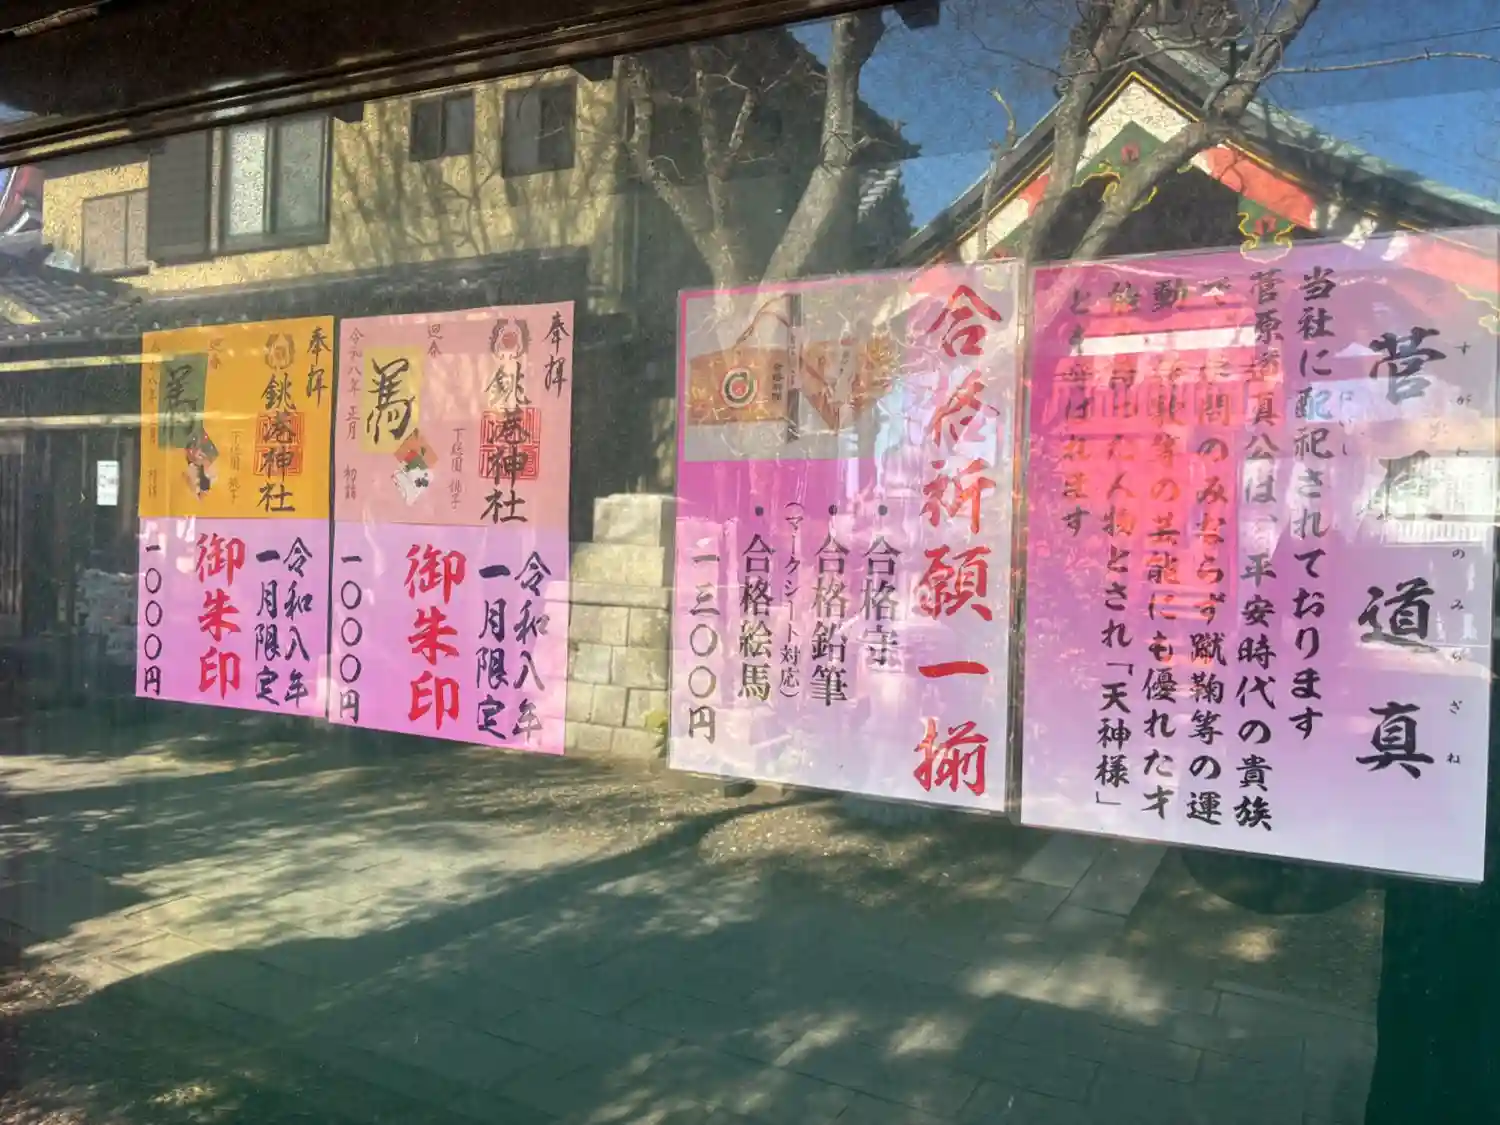 菅原道真
すがわらのみちざね
当社に配祀されております
はいし
菅原道真公は、平安時代の貴族
で、学問のみならず蹴鞠等の運
動、詩歌等の芸能にも優れたオ
とされ「天神様」
とよばれます
合格祈願一揃
・合格守
・合格鉛筆
(マークシート対応)
・合格絵馬
一三〇〇円
奉拝
銚港神社
迎春
馬
令和八年 正月
初詣
下総国 銚子
令和八年
一月限定
御朱印
一〇〇〇円
奉拝
銚港神社
迎春
馬
下総国 銚子
初詣
令和八年
一月限定
御朱印
一〇〇〇円